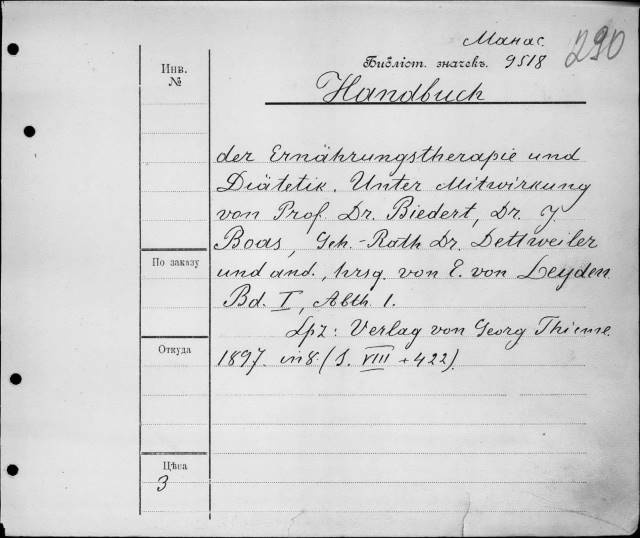 Манас.
290
Инв.
№
Библіот. значекъ. 9518
Handbuch
der Ernährungstherapie und
Diätetik. Unter Mitwirkung
von Prof. Dr. Biedert, Dr. J
Boas, Geh.-Rath Dr. Dettweiler
По заказу
und and., hrsg. von E. von Leyden.
Bd. I, Abth. 1.
Lpz: Verlag von Georg Thieme.
Откуда
1897. in 8. (S. VIII + 422).
Цѣна
3